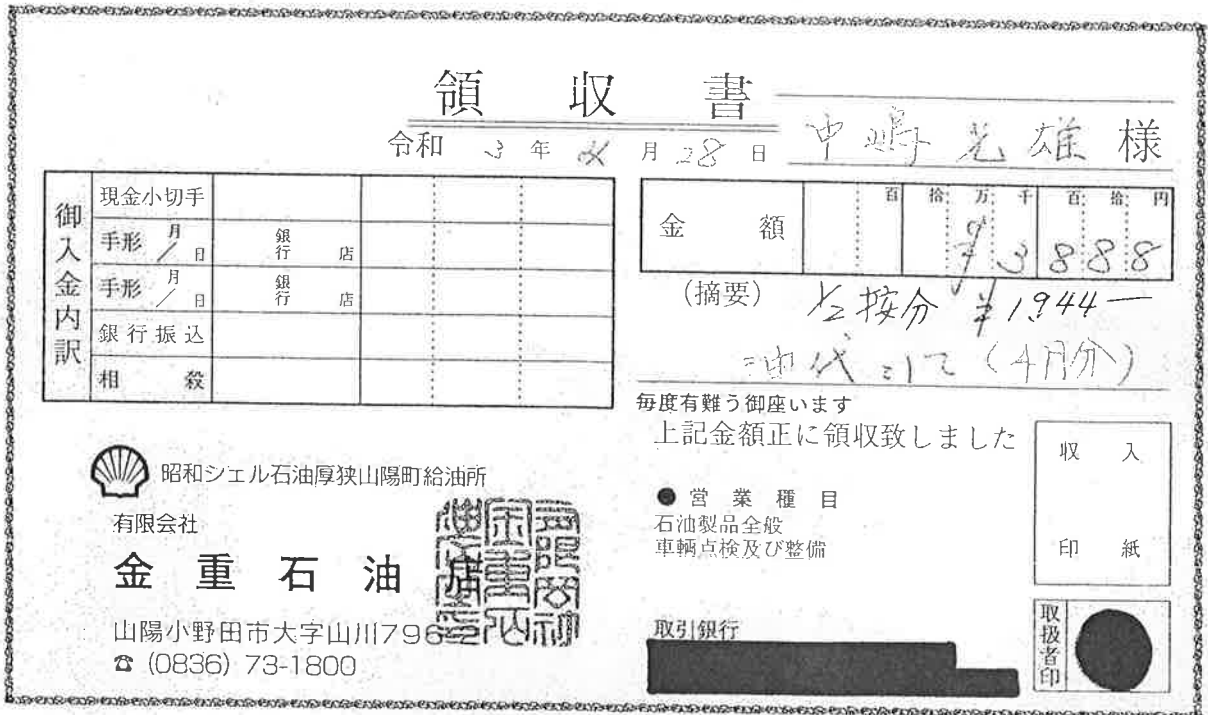 領収書
令和 3年 4月28日
中嶋光雄 様
御入金内訳
現金小切手
手形 月/日 銀行 店
手形 月/日 銀行 店
銀行振込
相殺
金額 百 拾 万 千 百 拾 円
¥3888
(摘要) 1/2按分 ¥1,944―
油代として(4月分)
毎度有難う御座います
上記金額正に領収致しました
収入
印紙
昭和シェル石油厚狭山陽町給油所
有限会社
金重石油店
山陽小野田市大字山川796
☎ (0836) 73-1800
● 営業種目
石油製品全般
車輌点検及び整備
取引銀行
取扱者印